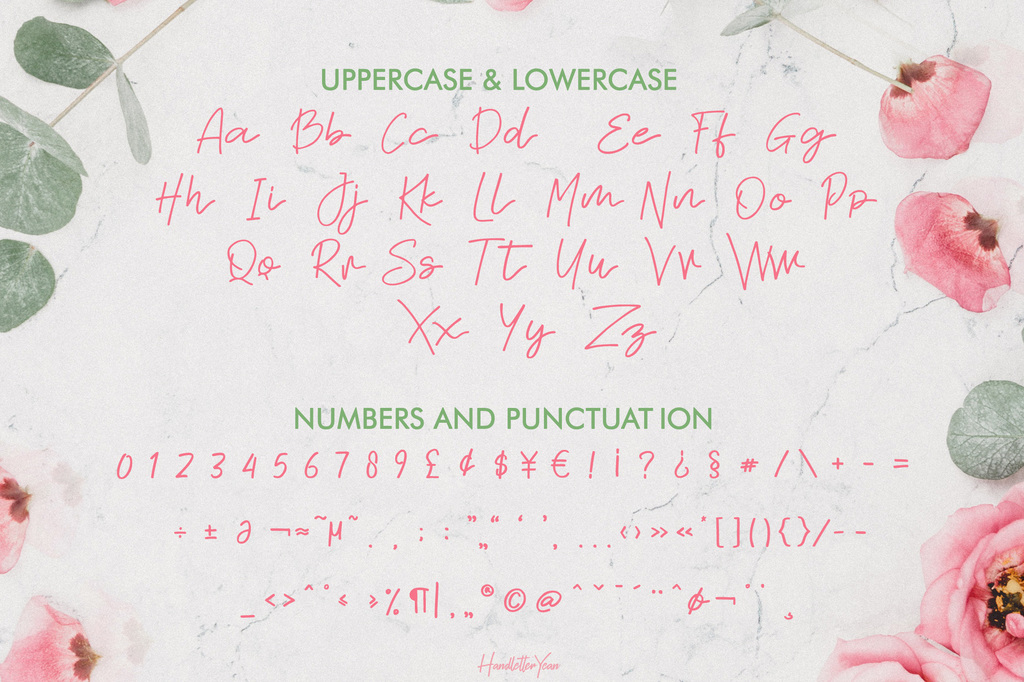 UPPERCASE & LOWERCASE
Aa Bb Cc Dd Ee Ff Gg
Hh Ii Jj Kk Ll Mm Nn Oo Pp
Qq Rr Ss Tt Uu Vv Ww
Xx Yy Zz
NUMBERS AND PUNCTUATION
0 1 2 3 4 5 6 7 8 9 £ ¢ $ ¥ € ! ¡ ? ¿ § # / \ + - =
÷ ± ∂ ¬ ≈ ˜ µ ˜ . , ; : ” „ “ ‘ ’ , ... ‹ › » « * [ ] ( ) { } / - -
_ < > ˆ ° ≤ ≥ % ¶ | , „ ® © @ ˆ ˇ ¯ ´ ¨ ˆ ø ¬ ˚ ¨ ¸
HandletterYean